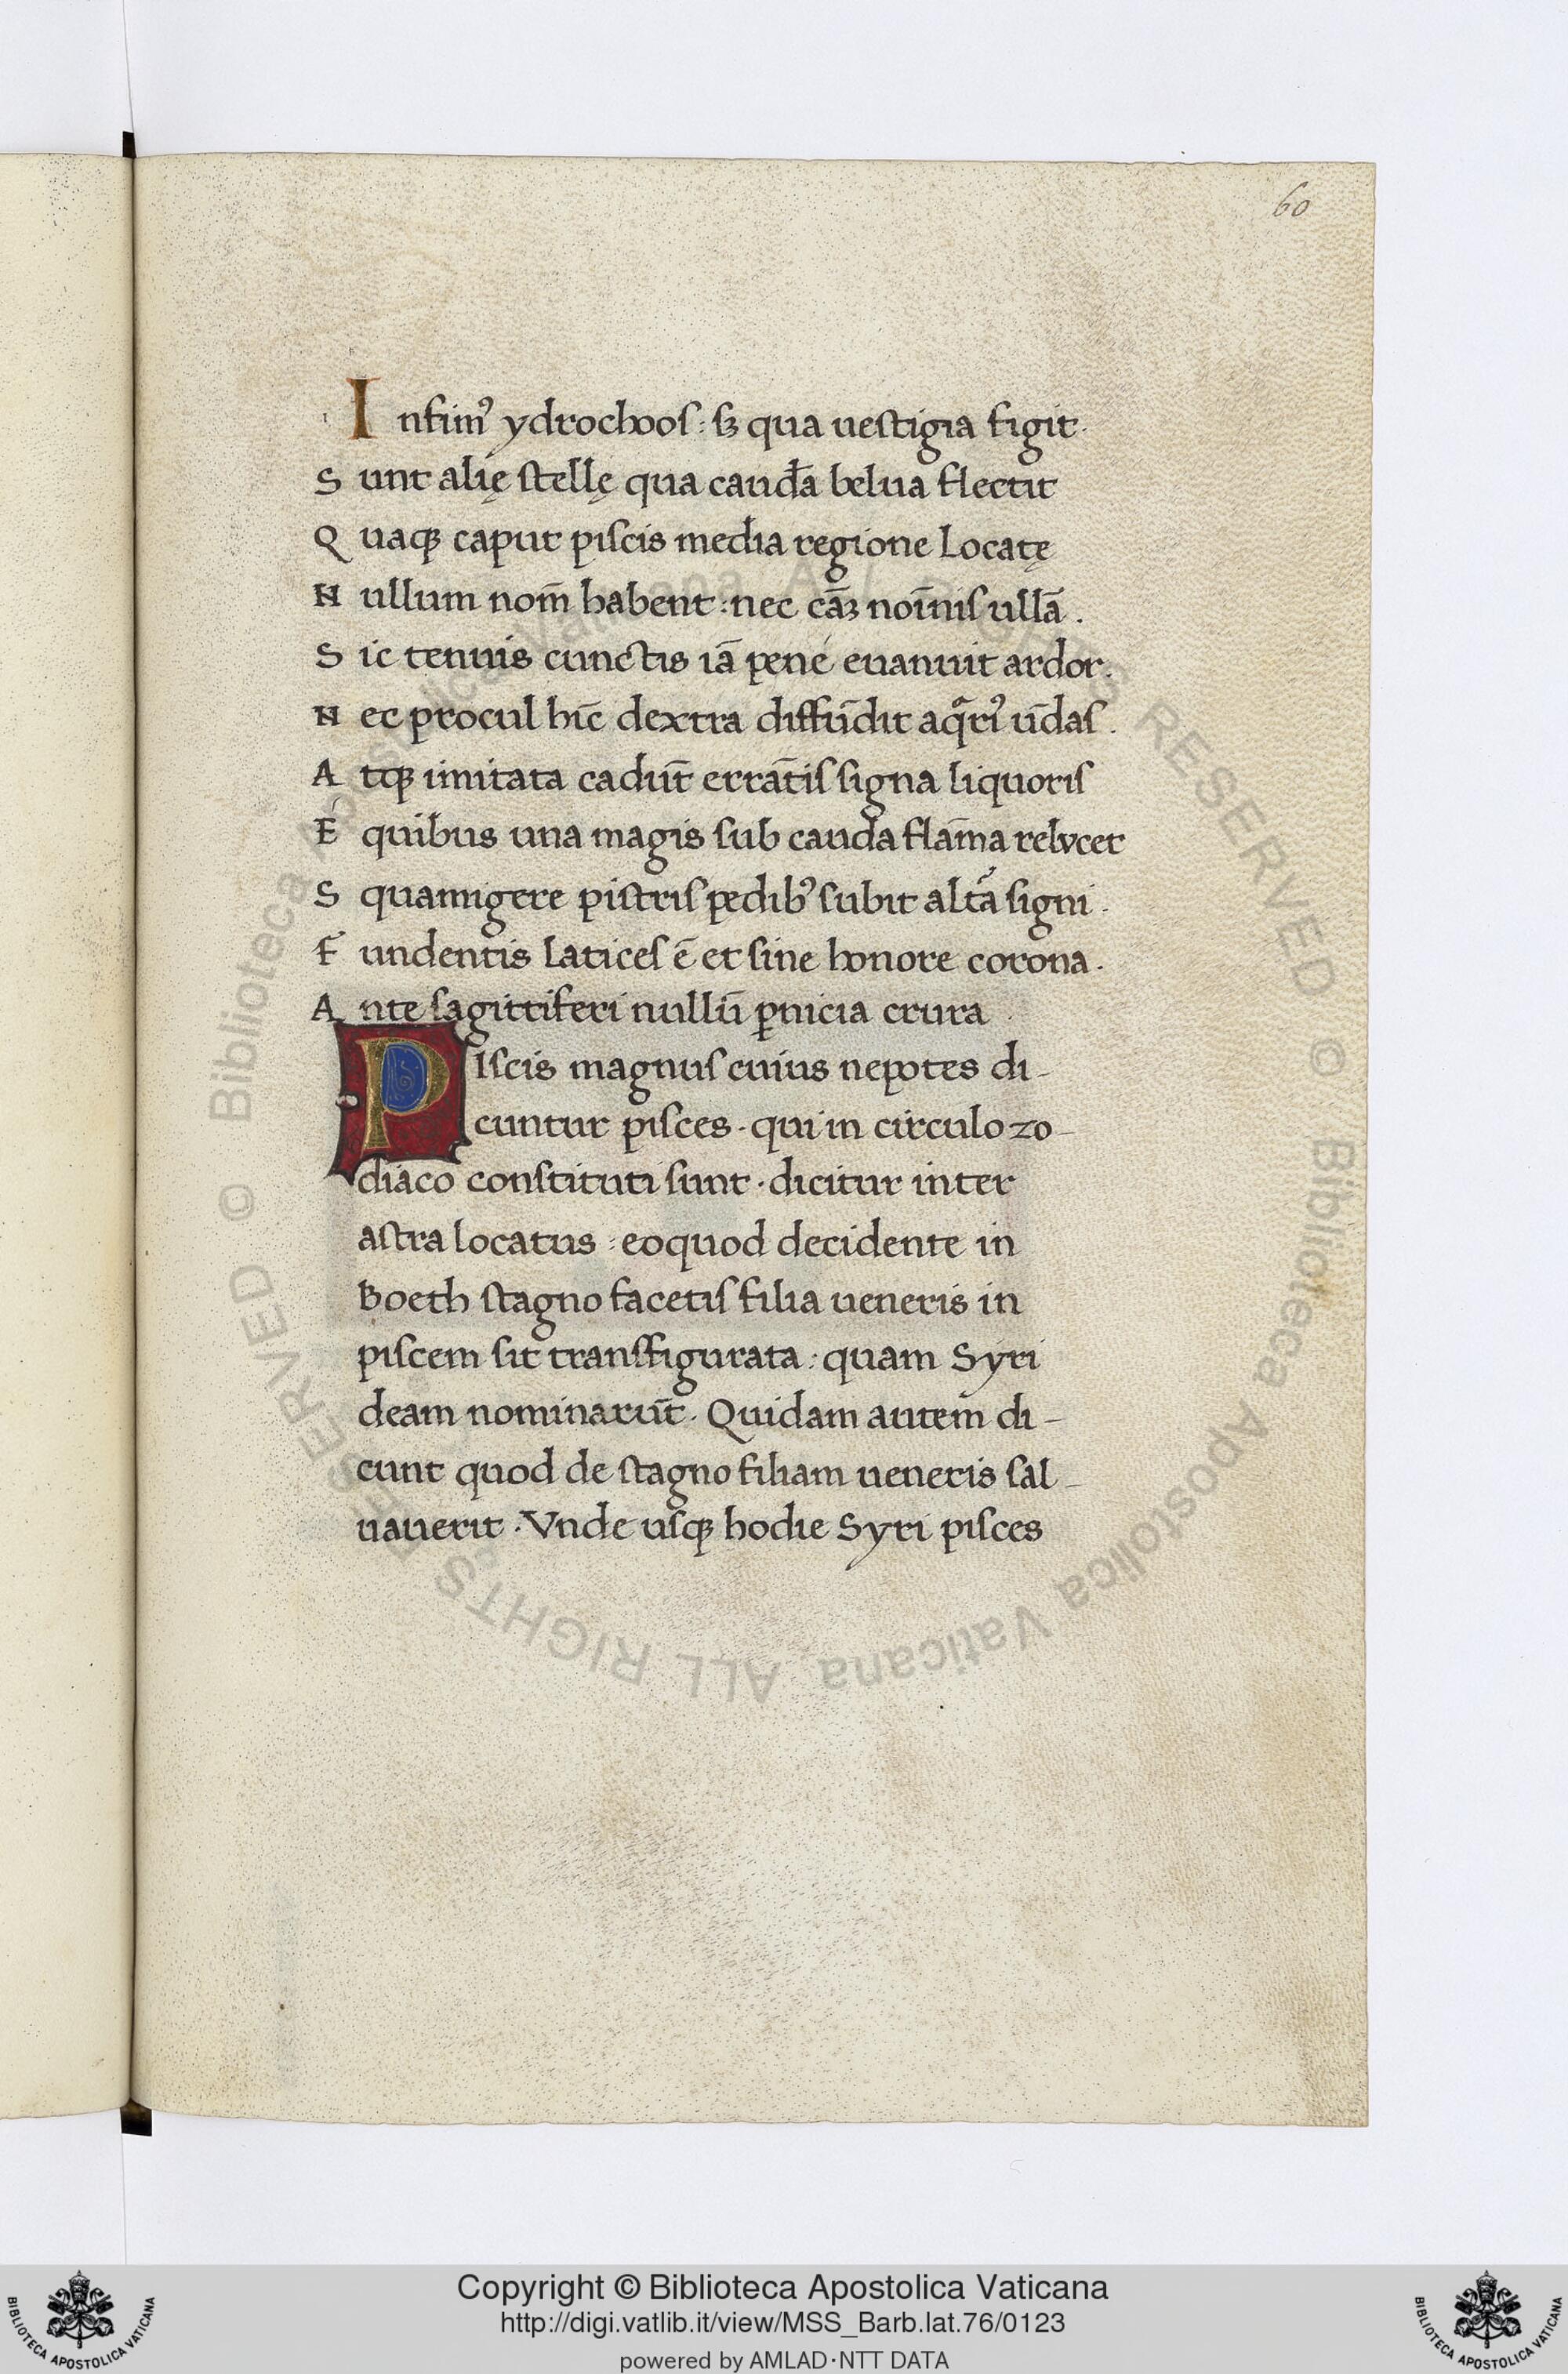 60
Infimꝰ ydrochoos : sꝫ qua uestigia figit.
Sunt alię stellę qua caudā belua flectit
Quaqꝫ caput piscis media regione locatę
Nullum nom̄ habent : nec cāꝫ noīnis ullā .
Sic tenuis cunctis iā pené euanuit ardor.
Nec procul hīc dextra diffūdit aqͣrꝰ ūdas .
Atqꝫ imitata cadūt errātis signa liquoris
E quibus una magis sub cauda flām̄a relvcet
Squamigere pistris pedibꝰ subit altā signi .
Fundentis latices ē et sine honore corona .
Ante sagittiferi nullū ꝑnicia crura
PIscis magnus cuius nepotes di-
cuntur pisces . qui in circulo zo-
diaco constituti sunt . dicitur inter
astra locatus : eoquod decidente in
Boeth stagno facetis filia ueneris in
piscem sit transfigurata : quam Syri
deam nominarūt . Quidam autem di-
cunt quod de stagno filiam ueneris sal-
uauerit . Vnde usqꝫ hodie Syri pisces
© Biblioteca Apostolica Vaticana ALL RIGHTS RESERVED © Biblioteca Apostolica Vaticana ALL RIGHTS RESERVED
Copyright © Biblioteca Apostolica Vaticana
http://digi.vatlib.it/view/MSS_Barb.lat.76/0123
powered by AMLAD·NTT DATA
BIBLIOTECA APOSTOLICA VATICANA
BIBLIOTECA APOSTOLICA VATICANA